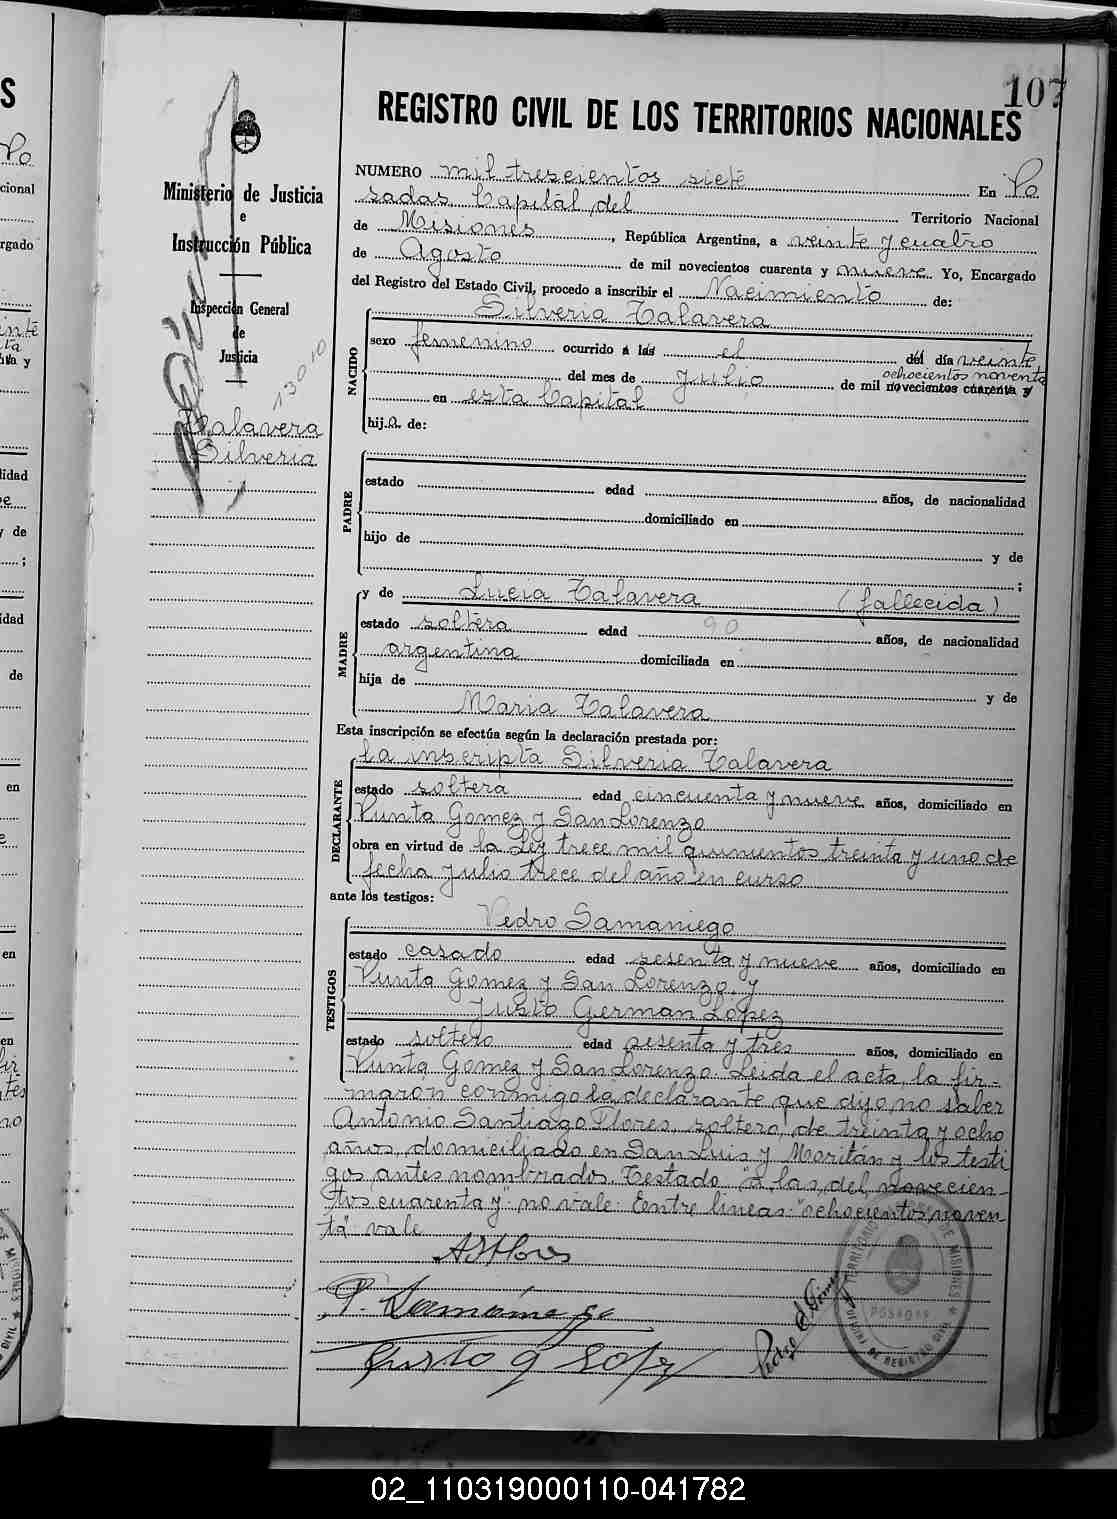 107
REGISTRO CIVIL DE LOS TERRITORIOS NACIONALES
Ministerio de Justicia
e
Instrucción Pública
Inspección General
de
Justicia
13010
Talavera
Silveria
NUMERO mil trescientos siete En Po
sadas Capital del Territorio Nacional
de Misiones, República Argentina, a veinte y cuatro
de Agosto de mil novecientos cuarenta y nueve Yo, Encargado
del Registro del Estado Civil, procedo a inscribir el Nacimiento de:
NACIDO
Silveria Talavera
sexo femenino ocurrido a las el del día veinte
ochocientos noventa
del mes de Julio de mil novecientos cuarenta y
en esta Capital
hija de:
PADRE
estado edad años, de nacionalidad
domiciliado en
hijo de y de
;
MADRE
y de Lucia Talavera (fallecida)
estado soltera edad 90 años, de nacionalidad
argentina domiciliada en
hija de y de
Maria Talavera
Esta inscripción se efectúa según la declaración prestada por:
DECLARANTE
la inscripta Silveria Talavera
estado soltera edad cincuenta y nueve años, domiciliado en
Punta Gomez y San Lorenzo
obra en virtud de la Ley trece mil quinientos treinta y uno de
fecha Julio trece del año en curso
ante los testigos:
TESTIGOS
Pedro Samaniego
estado casado edad sesenta y nueve años, domiciliado en
Punta Gomez y San Lorenzo y
Justo German Lopez
estado soltero edad sesenta y tres años, domiciliado en
Punta Gomez y San Lorenzo. Leida el acta, la fir-
maron conmigo la declarante que dijo no saber
Antonio Santiago Flores, soltero, de treinta y ocho
años, domiciliado en San Luis y Moritán y los testi
gos antes nombrados. Testado "a las, del novecien-
tos cuarenta y" no vale. Entre lineas: "ochocientos noven
ta" vale
ASFlores
P. Samaniego
Justo g Lopez
Pedro
TERRITORIO DE MISIONES
POSADAS
OFICINA DE REGISTRO CIVIL
02_110319000110-041782